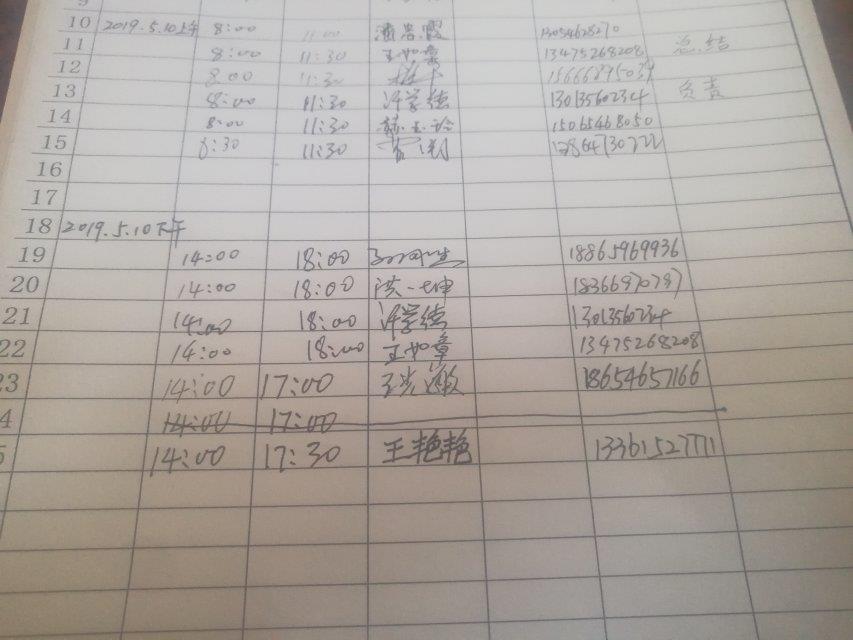 9
10 2019.5.10上午 8:00 11:00 13054628270
11 8:00 11:30 王如章 13475268208 总结
12 8:00 11:30 15666895034
13 8:00 11:30 许学德 13013560234 负责
14 8:00 11:30 15065468050
15 8:30 11:30
16
17
18 2019.5.10下午
19 14:00 18:00 18865969936
20 14:00 18:00 洪一坤 18366970797
21 14:00 18:00 许学德 13013560234
22 14:00 18:00 王如章 13475268208
23 14:00 17:00 18654657166
4 14:00 17:00
5 14:00 17:30 王艳艳 13361527711